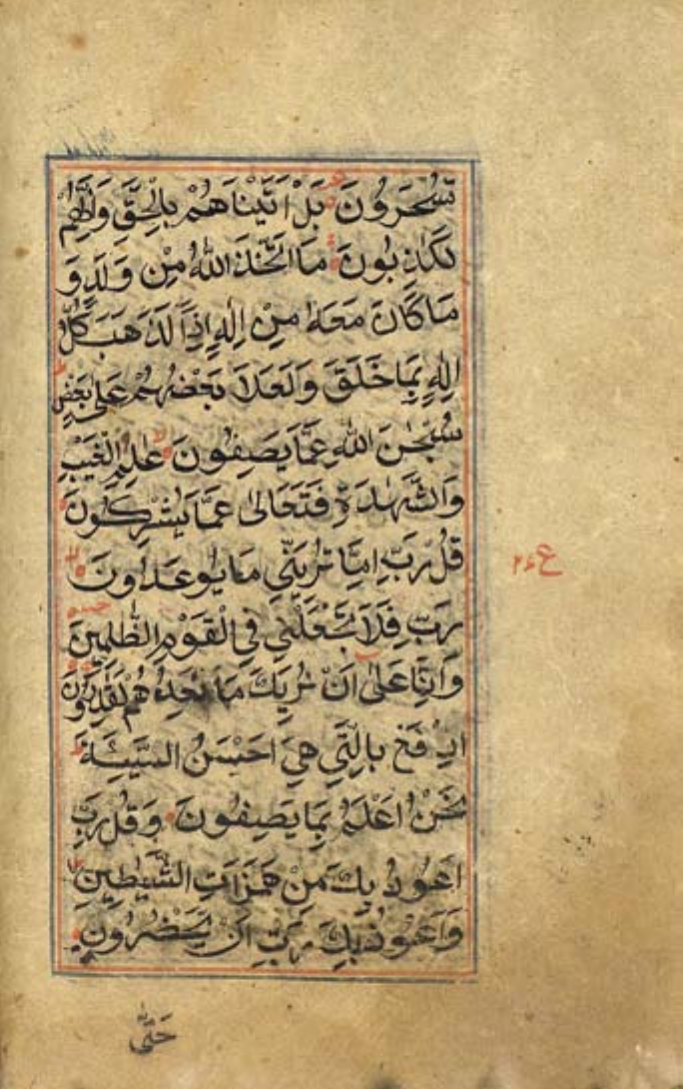 تُسْحَرُونَ بَلْ اَتَيْنَاهُمْ بِالْحَقِّ وَاِنَّهُمْ
لَكٰذِبُونَ مَا اتَّخَذَ اللّٰهُ مِنْ وَلَدٍ وَ
مَا كَانَ مَعَهُ مِنْ اِلٰهٍ اِذًا لَذَهَبَ كُلُّ
اِلٰهٍ بِمَا خَلَقَ وَلَعَلَا بَعْضُهُمْ عَلٰى بَعْضٍ
سُبْحٰنَ اللّٰهِ عَمَّا يَصِفُونَ عٰلِمِ الْغَيْبِ
وَالشَّهَادَةِ فَتَعَالٰى عَمَّا يُشْرِكُونَ
قُلْ رَبِّ اِمَّا تُرِيَنِّي مَا يُوعَدُونَ
رَبِّ فَلَا تَجْعَلْنِي فِي الْقَوْمِ الظّٰلِمِينَ
وَاِنَّا عَلٰى اَنْ نُرِيَكَ مَا نَعِدُهُمْ لَقٰدِرُونَ
اِدْفَعْ بِالَّتِي هِيَ اَحْسَنُ السَّيِّئَةَ
نَحْنُ اَعْلَمُ بِمَا يَصِفُونَ وَقُلْ رَبِّ
اَعُوذُ بِكَ مِنْ هَمَزَاتِ الشَّيٰطِينِ
وَاَعُوذُ بِكَ رَبِّ اَنْ يَحْضُرُونِ
حَتّٰى